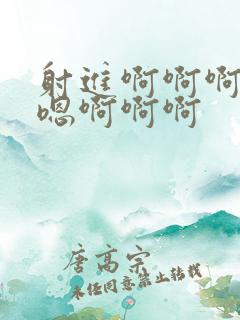 射进啊啊啊
嗯啊啊啊
唐高宗
未经同意禁止转载